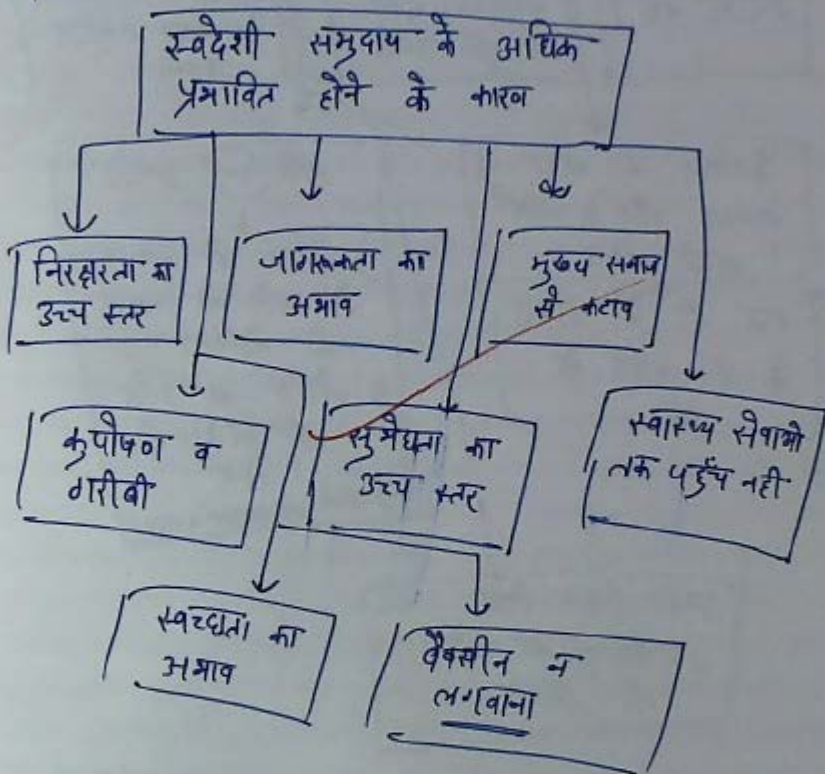 स्वदेशी समुदाय के अधिक
प्रभावित होने के कारन
निरक्षरता का
उच्च स्तर
जागरूकता का
अभाव
मुख्य समाज
से कटाव
कुपोषण व
गरीबी
सुभेद्यता का
उच्च स्तर
स्वास्थ्य सेवाओ
तक पहुँच नही
स्वच्छता का
अभाव
वैक्सीन न
लगवाना